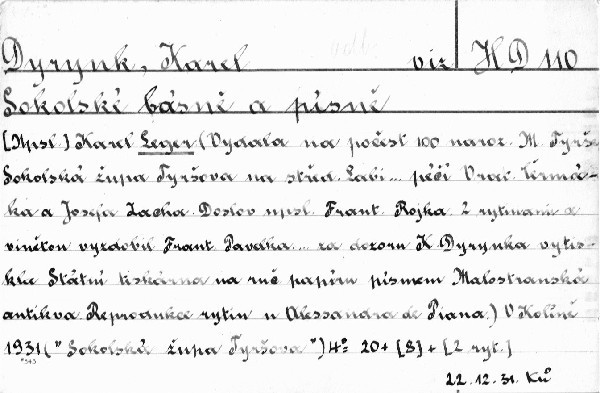 Dyrynk, Karel viz HD 110
Sokolské básně a písně
[Npsl.] Karel Leger (Vydala na počest 100 naroz. M. Tyrše
Sokolská župa Tyršova na střed. Labi... péčí Vrat. Čermá-
ka a Josefa Zacha. Doslov npsl. Frant. Rojka. 2 rytinami a
vinětou vyzdobil Frant. Pavelka... za dozoru K. Dyrynka vytis-
kle Státní tiskárna na ruč. papíru písmem Malostranská
antikva. Reprodukce rytin u Alessandra de Piana.) V Kolíně
1931 ("Sokolská župa Tyršova") 4° 20+[8]+[2 ryt.]
22.12.31. Ků